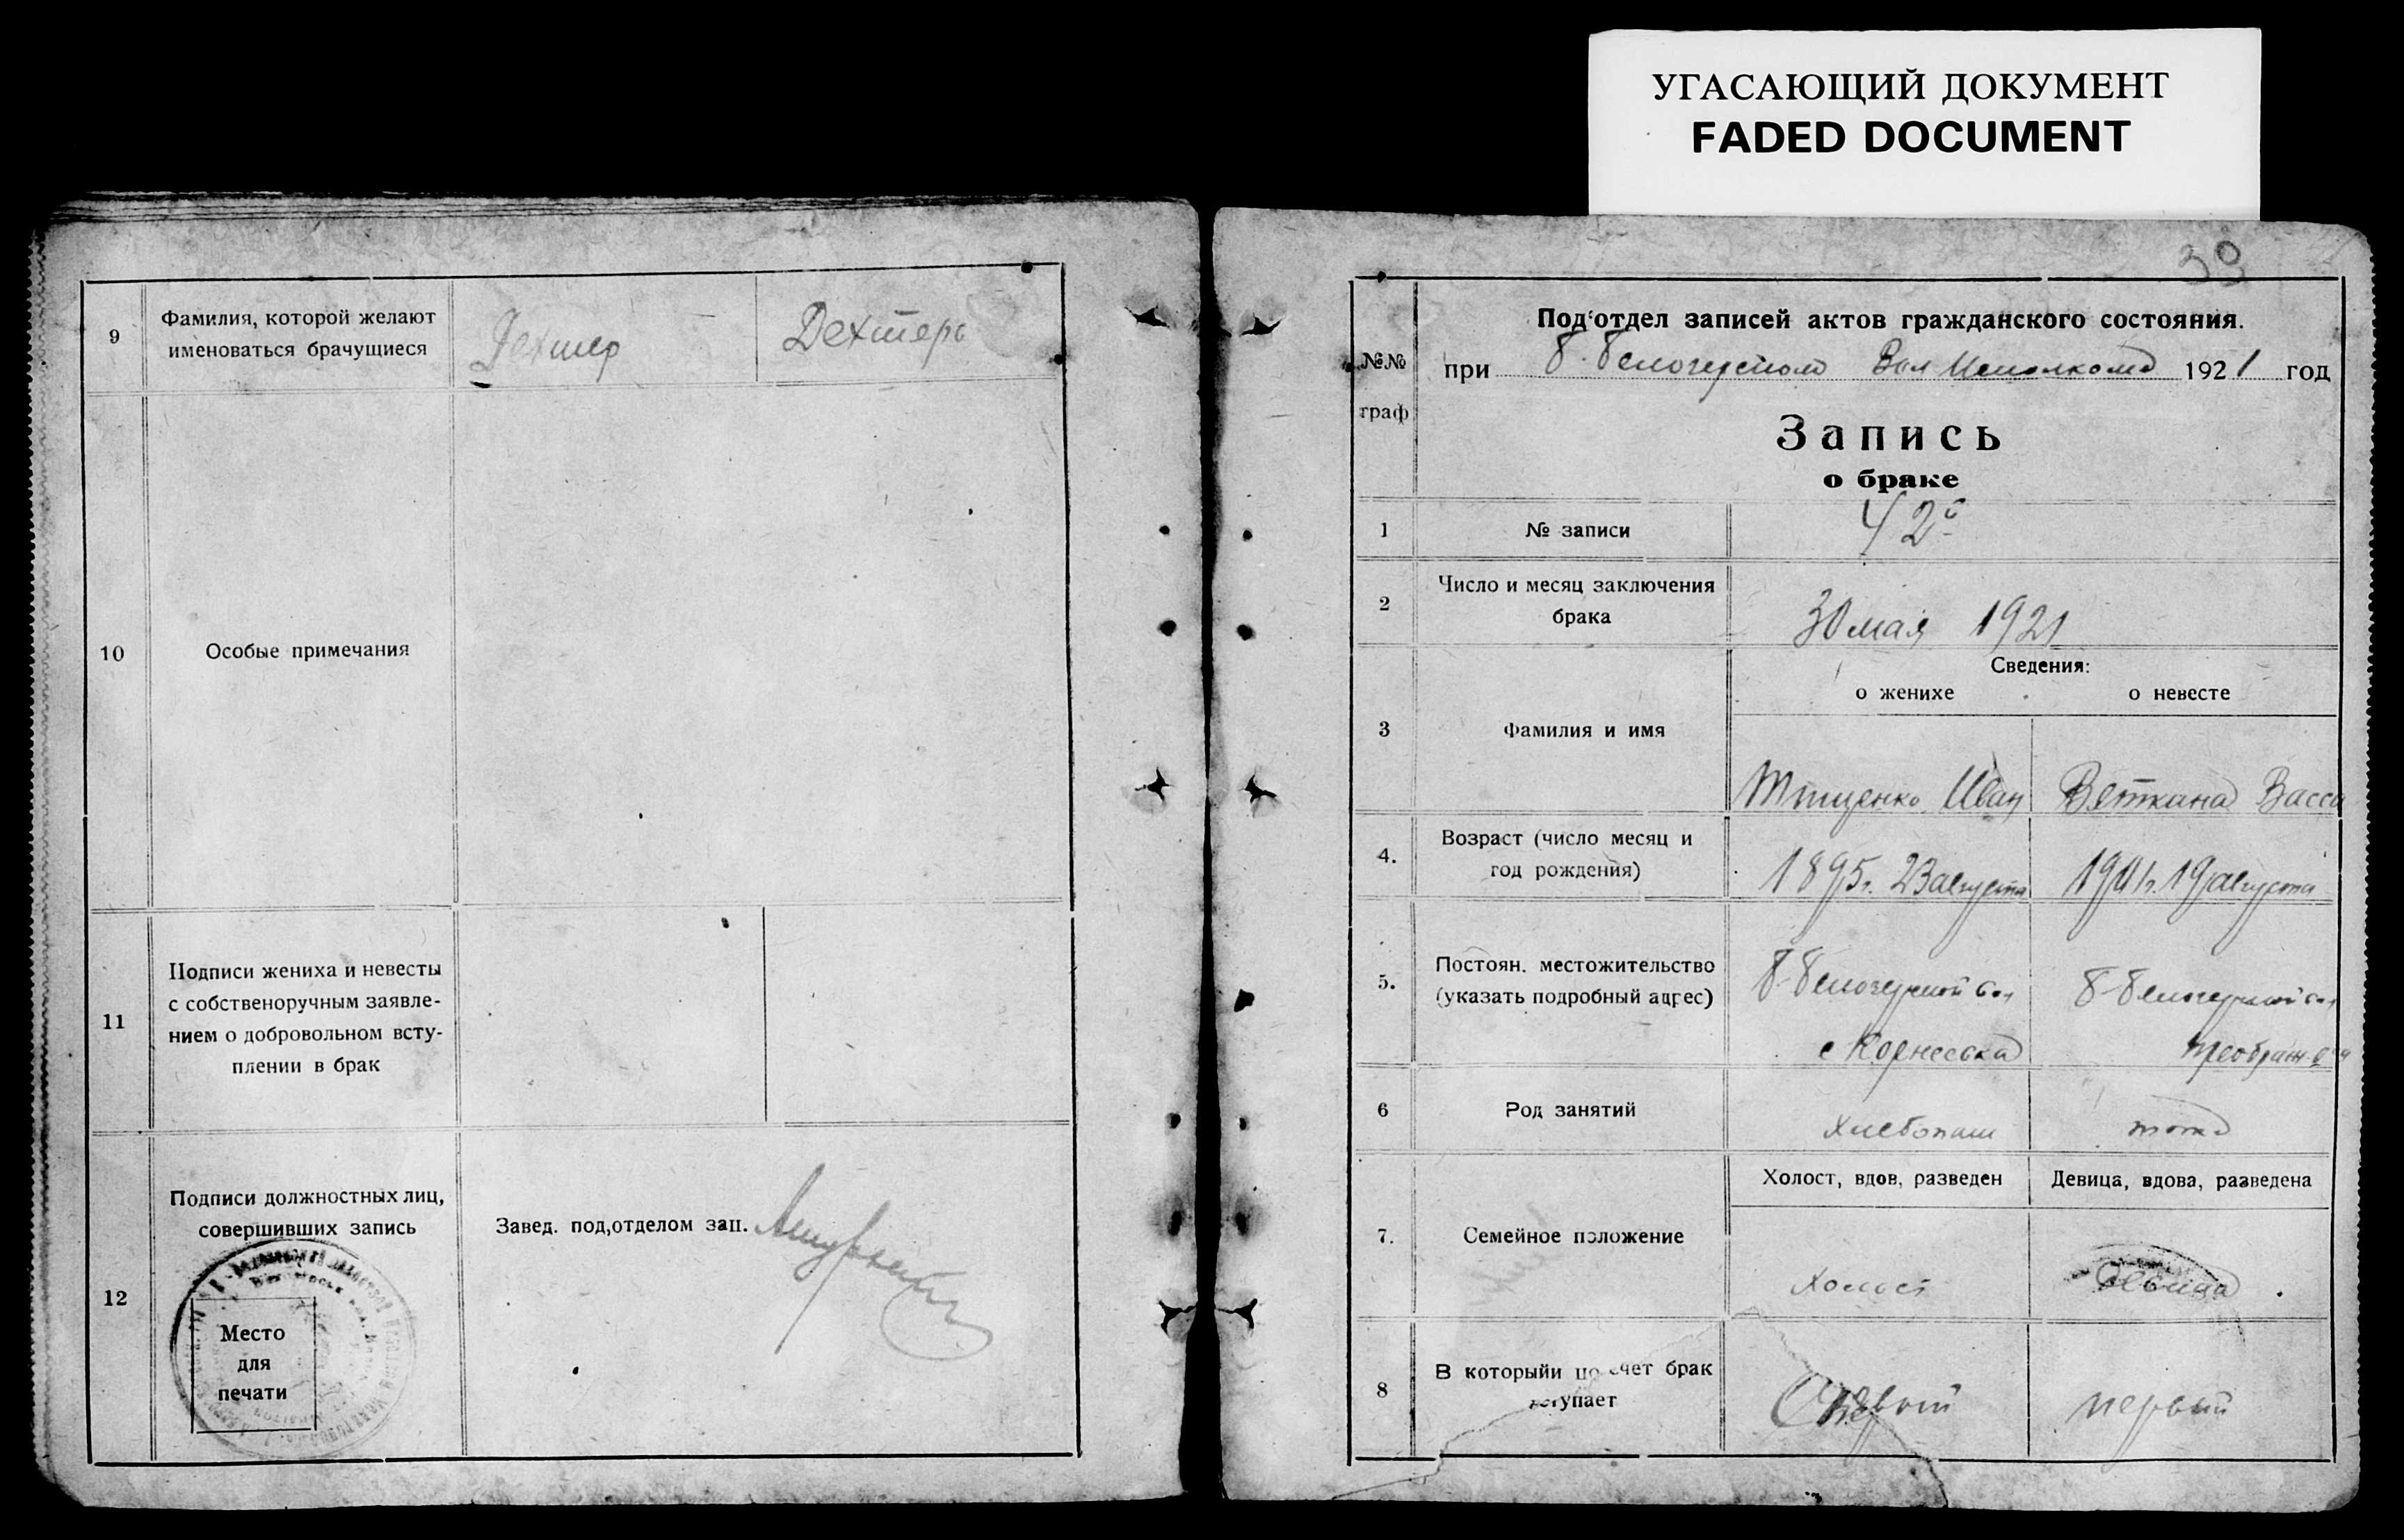 УГАСАЮЩИЙ ДОКУМЕНТ
FADED DOCUMENT
9
Фамилия, которой желают
именоваться брачущиеся
Дехтер
Дехтерь
10
Особые примечания
11
Подписи жениха и невесты
с собственоручным заявле-
нием о добровольном всту-
плении в брак
12
Подписи должностных лиц,
совершивших запись
Место
для
печати
Завед. под‚отделом зап.
39
№№
граф
Под‘отдел записей актов гражданского состояния.
при Б. Белозерском Вол Исполкоме 1921 год
Запись
о браке
1
№ записи
42
2
Число и месяц заключения
брака
30 мая 1921
3
Фамилия и имя
Сведения:
о женихе
о невесте
Тищенко Иван
Веткина Васса
4.
Возраст (число месяц и
год рождения)
1895г. 23 августа
1901г. 19 августа
5.
Постоян. местожительство
(указать подробный адрес)
Б-Белозерской вол
с Корнеевка
Б-Белозерской вол
6
Род занятий
Хлебопаш
тоже
7.
Семейное положение
Холост, вдов, разведен
Девица, вдова, разведена
Холост
Девица
8
В которыйи по счет брак
вступает
первый